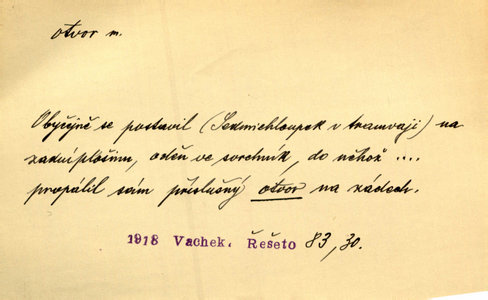 otvor m.
Obyčejně se postavil (Sedmichloupek v tramvaji) na
zadní plošinu, oděn ve svrchník, do něhož ....
propálil sám příslušný otvor na zádech.
1918 Vachek. Řešeto 83, 30.